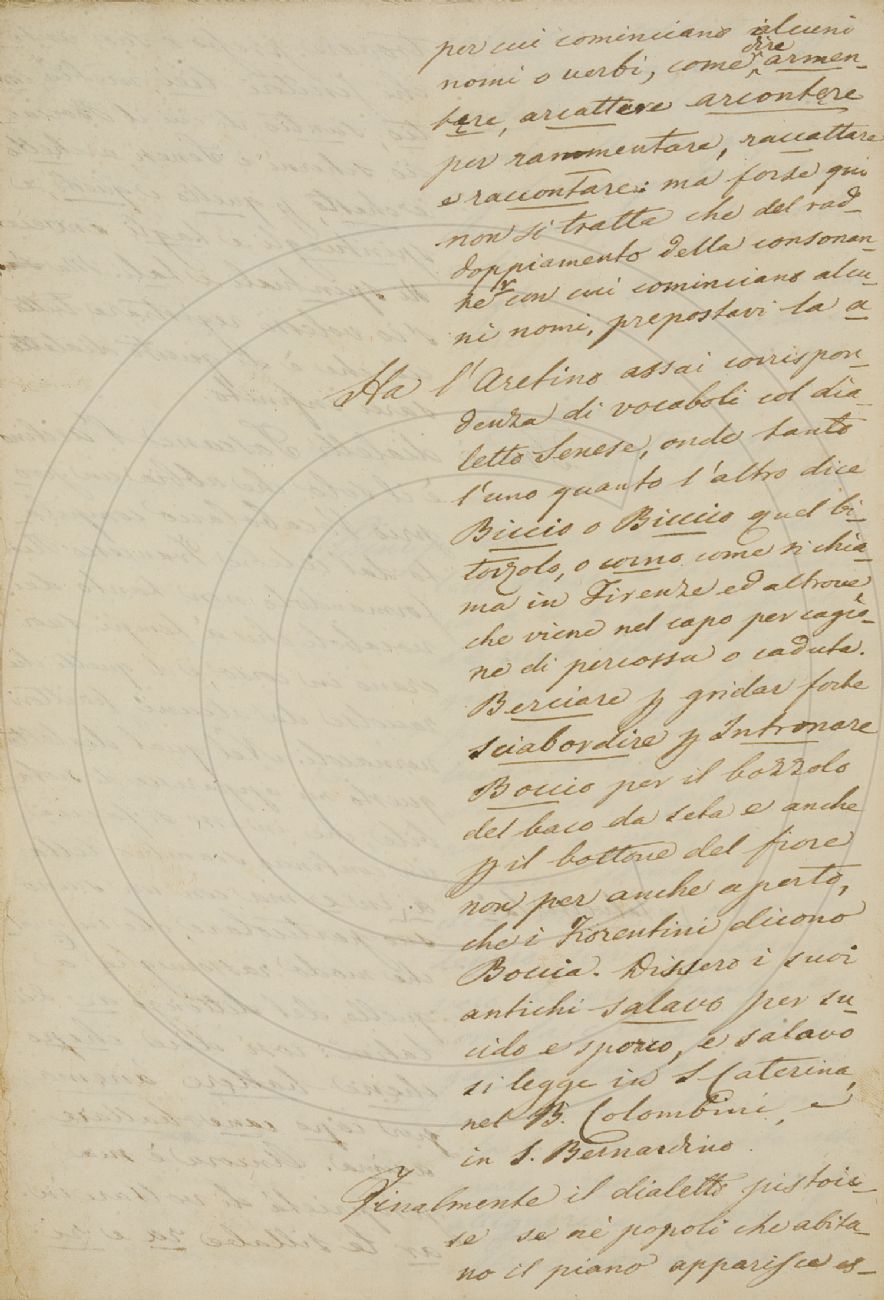 per cui cominciano alcuni
nomi o verbi, come dire armen-
tere, arcattere arcontere
per rammentare, raccattare
e raccontare: ma forse qui
non si tratta che del rad-
doppiamento della consonan-
te r con cui cominciano alcu-
ni nomi, prepostavi la a
Ha l'Aretino assai corrispon-
denza di vocaboli col dia-
letto Senese, onde tanto
l'uno quanto l'altro dice
Biccio o Biccico quel bi-
torzolo, o corno come si chia-
ma in Firenze ed altrove
che viene nel capo per cagio-
ne di percossa o caduta.
Berciare p gridar forte
sciabordire p Intronare
Boccio per il bozzolo
del baco da seta e anche
p il bottone del fiore
non per anche aperto,
che i Fiorentini dicono
Boccia. Dissero i suoi
antichi salavo per su-
cido e sporco, e salavo
si legge in S Caterina,
nel B. Colombini, e
in S. Bernardino.
Finalmente il dialetto pistoie-
se se ne' popoli che abita-
no il piano apparisce es-